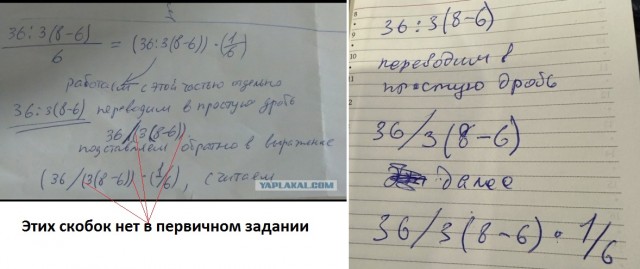 36:3(8-6)
6
= (36:3(8-6)) · (1/6)
работаем с этой частью отдельно
36:3(8-6) переводим в простую дробь
36/(3(8-6))
подставляем обратно в выражение
(36/(3(8-6)) · (1/6), считаем
YAPLAKAL.COM
Этих скобок нет в первичном задании
36:3(8-6)
переводим в
простую дробь
36/3(8-6)
далее
36/3(8-6) · 1/6